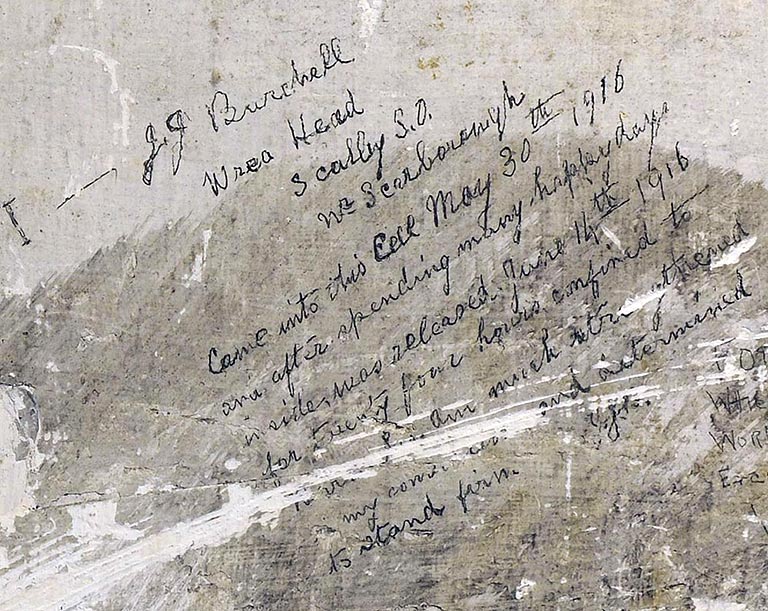 I — J.J. Burchell
Wrea Head
Scalby S.O.
Nr Scarborough
Came into this Cell May 30th 1916
and after spending many happy days
inside was released. June 14th 1916
for twenty four hours confined to
am much strengthened
my and determined
to stand firm.
WORK